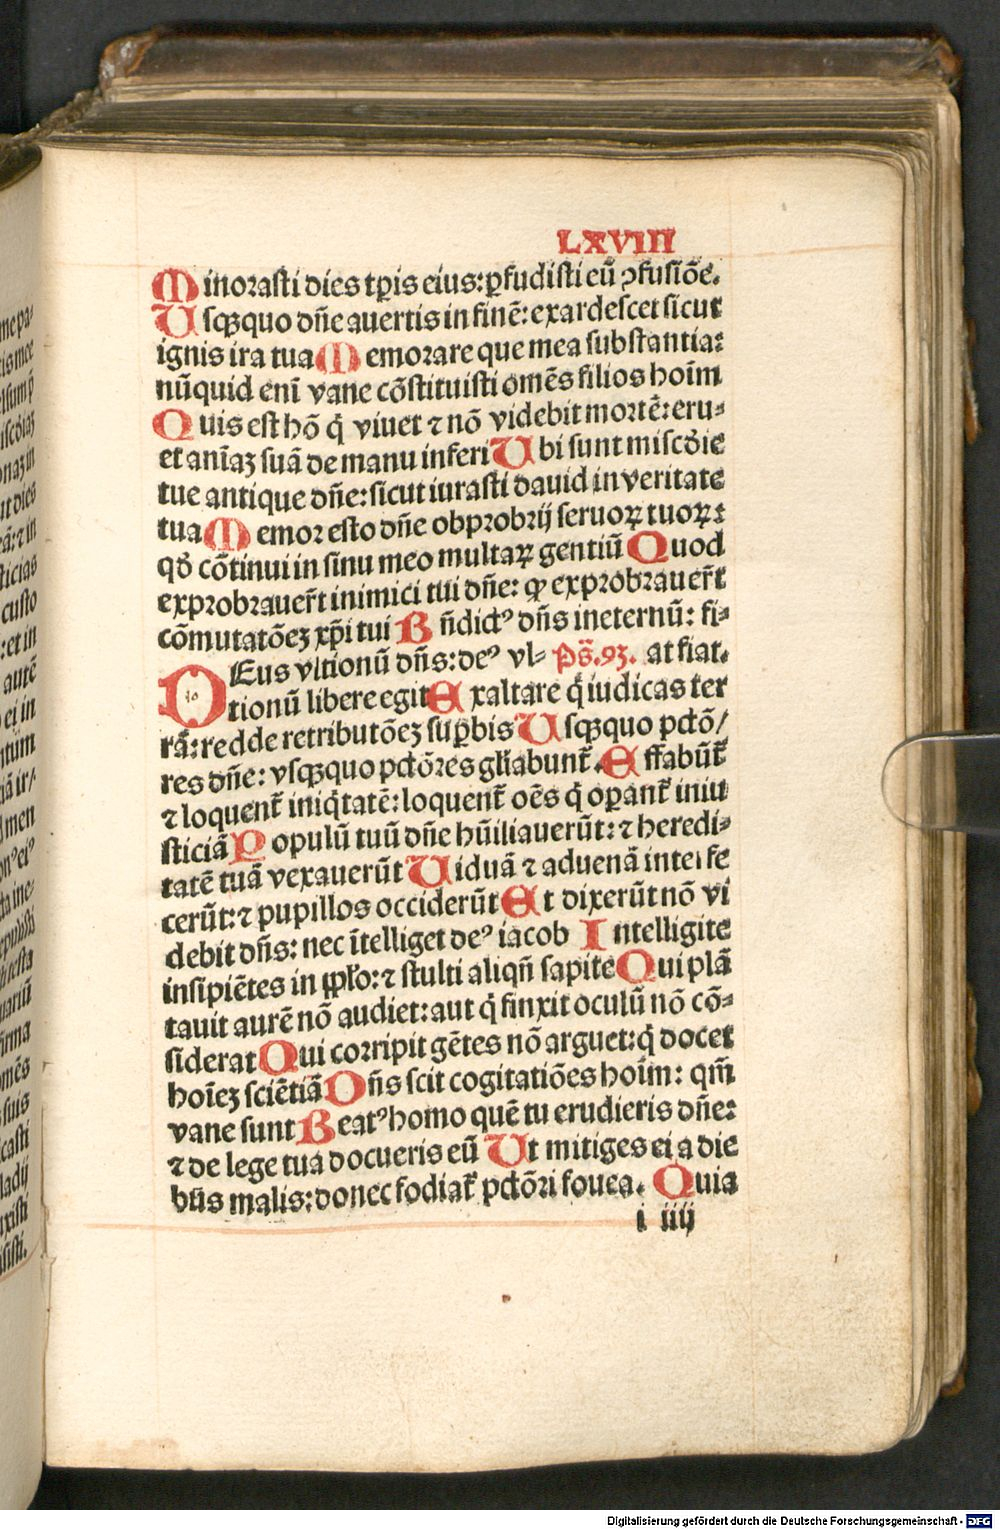 LXVIII
Minorasti dies tꝑis eius: ꝑfudisti eū ꝯfusiōe.
Usqꝫquo dn̄e auertis in finē: exardescet sicut
ignis ira tua Memorare que mea substantia:
nūquid enī vane cōstituisti om̄es filios hoīm
Quis est hō q̄ viuet ⁊ nō videbit mortē: eru-
et anīaꝫ suā de manu inferi Ubi sunt mīscd̄ie
tue antique dn̄e: sicut iurasti dauid in veritate
tua Memor esto dn̄e obprobrij seruoꝝ tuoꝝ:
qd̄ cōtinui in sinu meo multaꝝ gentiū Quod
exprobrauer̄t inimici tui dn̄e: ꝙ exprobrauer̄t
cōmutatōeꝫ xp̄i tui Bn̄dictꝰ dn̄s ineternū: fi-
at fiat.
DEus vltionū dn̄s: deꝰ vl- Ps̄.93.
tionū libere egit Exaltare q̄ iudicas ter
rā: redde retributōeꝫ suꝑbis Usqꝫquo pctō/
res dn̄e: vsqꝫquo pctōres gl̄iabunt̄. Effabūt̄
⁊ loquent̄ iniq̄tatē: loquent̄ oēs q̄ oꝑant̄ iniu
sticiā Populū tuū dn̄e hūiliauerūt: ⁊ heredi-
tatē tuā vexauerūt Uiduā ⁊ aduenā interfe
cerūt: ⁊ pupillos occiderūt Et dixerūt nō vi
debit dn̄s: nec ītelliget deꝰ iacob Intelligite
insipiētes in pp̄lo: ⁊ stulti aliqn̄ sapite Qui plā
tauit aurē nō audiet: aut q̄ finxit oculū nō cō-
siderat Qui corripit gētes nō arguet: q̄ docet
hoīeꝫ sciētiā Dn̄s scit cogitatiōes hoīm: qm̄
vane sunt Beatꝰ homo quē tu erudieris dn̄e:
⁊ de lege tua docueris eū Ut mitiges ei a die
bus malis: donec fodiat̄ pctōri fouea. Quia
i iiij
Digitalisierung gefördert durch die Deutsche Forschungsgemeinschaft - DFG